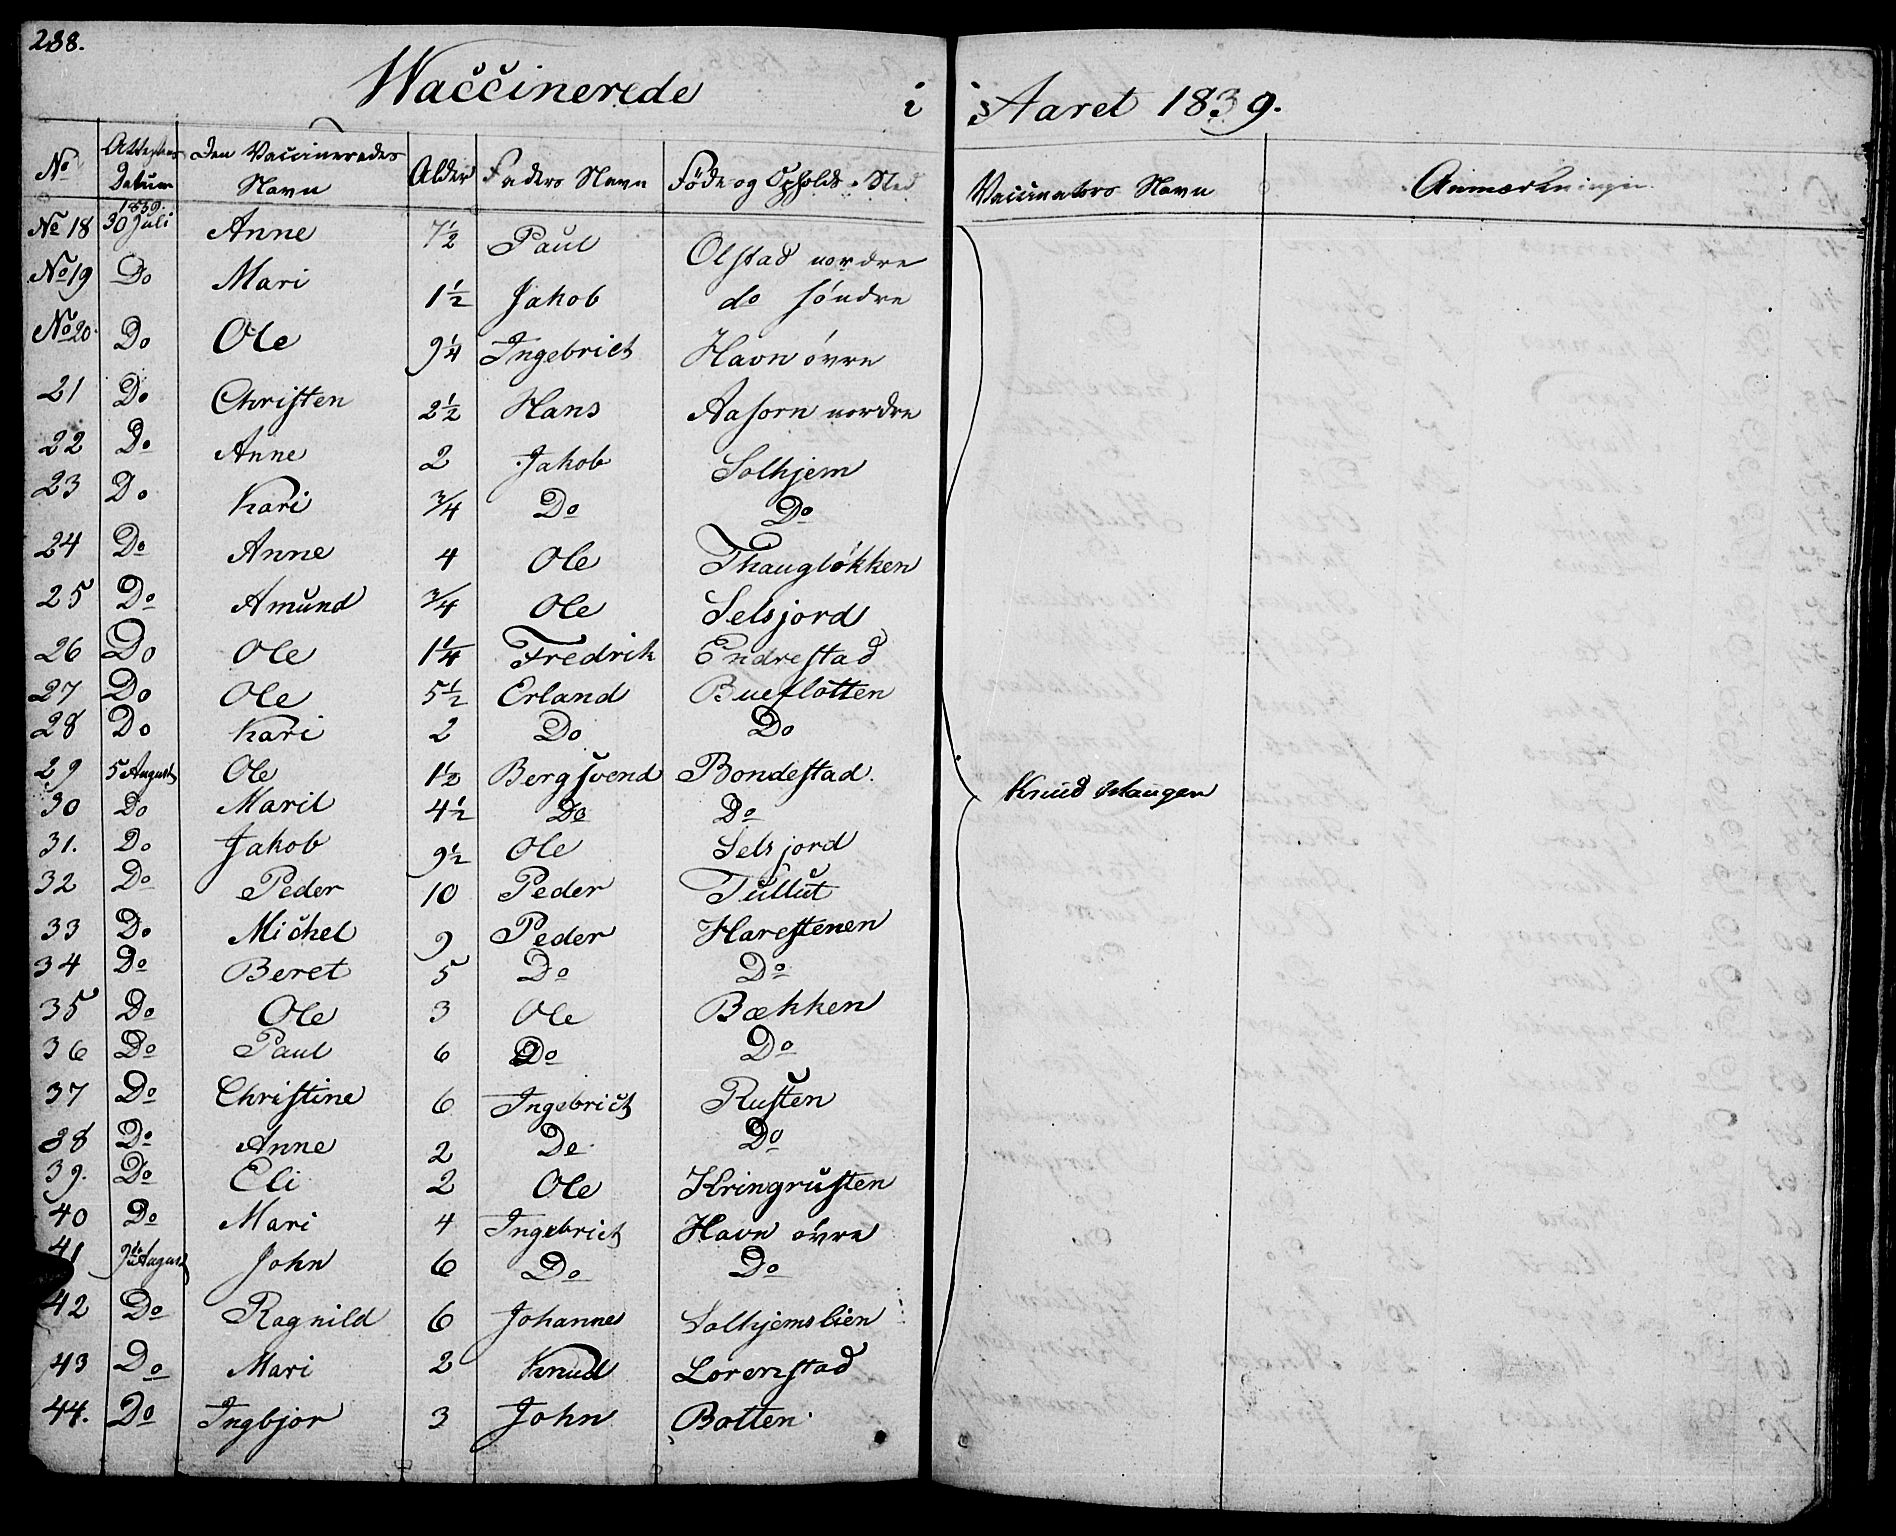 288.
Waccinerede i Aaret 1839.
No Attestens Datum Den Vaccineredes Navn Alder Faders Navn Föde og Opholds-Sted Vaccinators Navn Anmærkninger
No 18 1839. 30 Juli Anne 7½ Paul Olstad nordre
No 19 Do Mari 1½ Jakob do söndre
No 20. Do Ole 9¼ Ingebrict Havn övre
21 Do Christen 2½ Hans Aasorn nordre
22 Do Anne 2 Jakob Solhjem
23 Do Kari ¾ Do Do
24 Do Anne 4 Ole Thauglökken
25 Do Amund ¾ Ole Selsjord
26 Do Ole 1¼ Fredrik Endrestad
27 Do Ole 5½ Erland Bueflotten
28 Do Kari 2 Do Do
29 5 August Ole 1½ Bergsvend Bondestad.
30 Do Marit 4½ Do Do
Knud Haugen
31. Do Jakob 9½ Ole Selsjord
32 Do Peder 10 Peder Tullut
33 Do Michel 9 Peder Harestenen
34 Do Beret 5 Do Do
35 Do Ole 3 Ole Bækken
36 Do Paul 6 Do Do
37 Do Christine 6 Ingebrict Rusten
38 Do Anne 2 Do Do
39. Do Eli 2 Ole Kringrusten
40 Do Mari 4 Ingebrict Havn övre
41 9de August John 6 Do Do
42 Do Ragnild 6 Johannes Solhjemslien
43 Do Mari 2 Knud Lorenstad
44. Do Ingbjor 3 John Botten